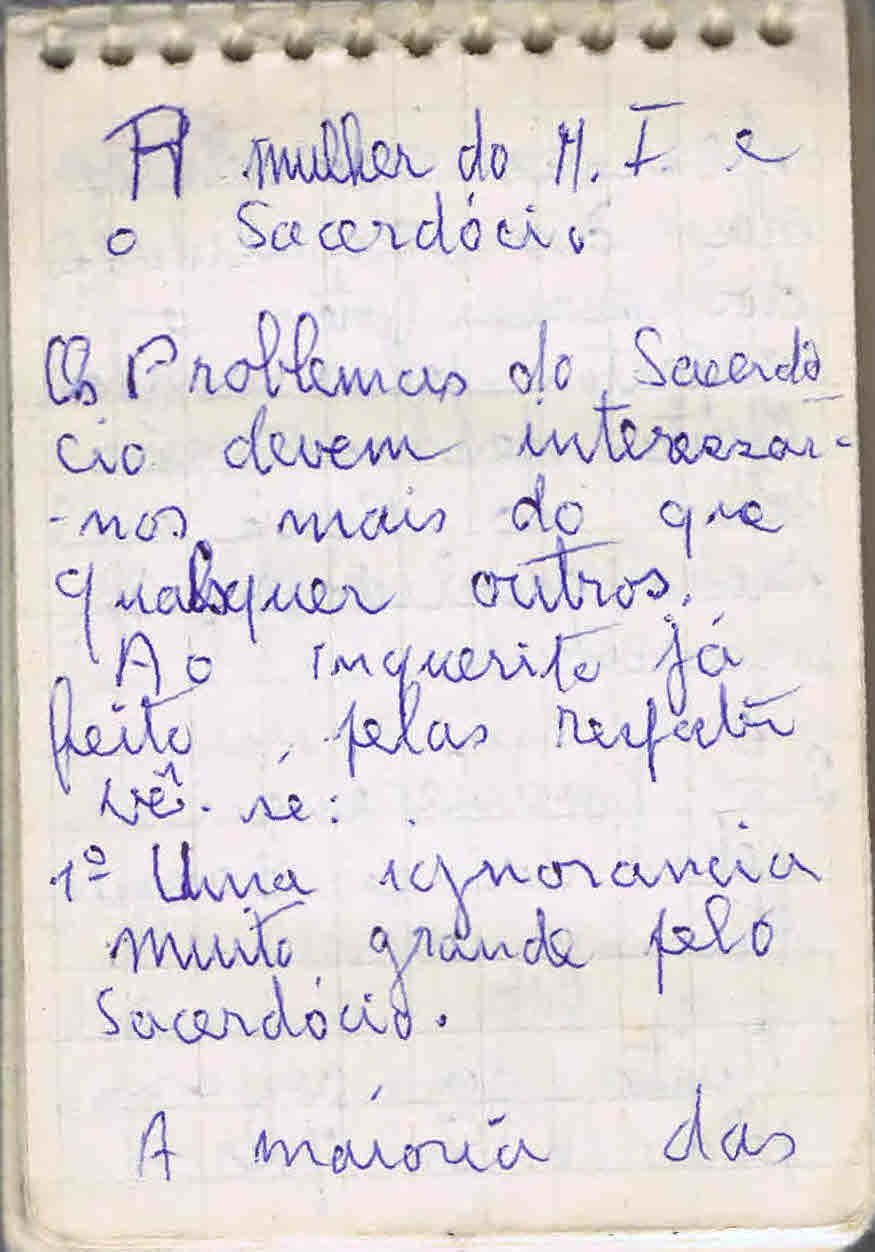 A mulher do M. I e
o Sacerdócio
Os Problemas do Sacerdó
cio devem interessar-
-nos mais do que
quaisquer outros.
Ao inquerito já
feito, pelas
vê-se:
1º Uma ignorancia
muito grande pelo
Sacerdócio.
A maioria das